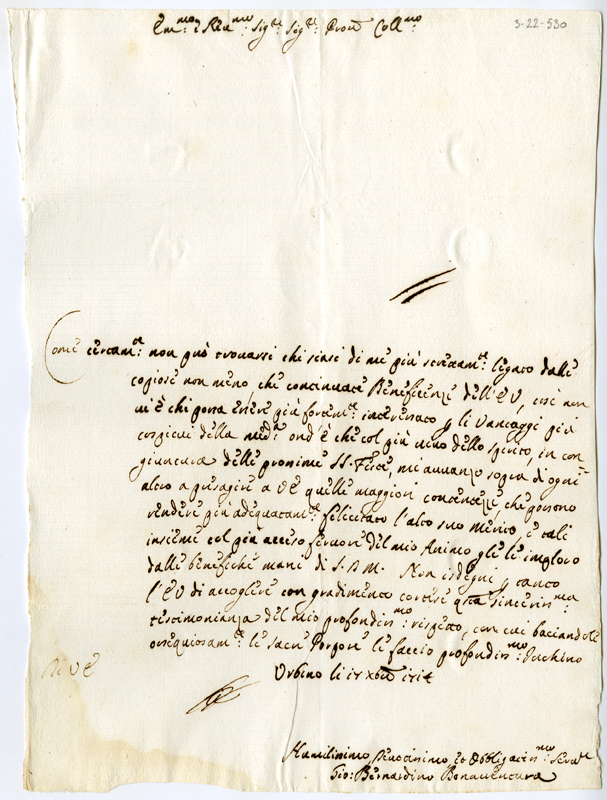 3-22-530
Em.mo e Reu.mo Sig.r Sig.r Prõn Coll.mo
Come certam.te non può trouarsi chi sensi di me più strettam.te legato dalle
copiose non meno che continuate Beneficenze dell'EV, così non
ui è chi possa essere più fortem.te interessato ꝑ li Vantaggi più
cospicui della med.a ond'è che col più uiuo dello spirito, in con
giuntura delle prossime SS. Feste, mi auuanzo sopra di ogni
altro a presagire a VE quelle maggiori contentezze, che possono
rendere più adequatam.te felicitato l'alto suo merito, e tali
insieme col più acceso feruore del mio Animo gle le imploro
dalle benefiche mani di S.D.M. Non isdegni ꝑ tanto
l'EV di accogliere con gradimento cortese qsta sinceris.ma
testimonianza del mio profondis.mo rispetto, con cui baciandole
ossequiosam.te le sacre Porpore le faccio profondis.mo Inchino
Di VE
Urbino li Xbre 1714
Humilissimo Deuotissimo et Obbligatis.mo Seru.re
Gio: Bernardino Bonauentura